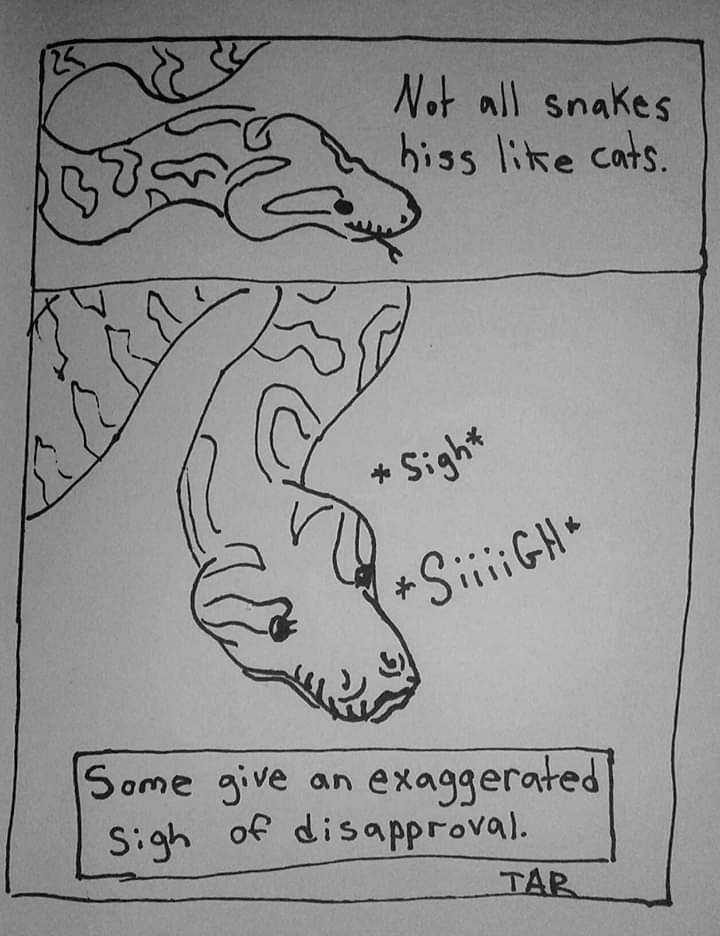 Not all snakes
hiss like cats.
*Sigh*
*SiiiiGH*
Some give an exaggerated
Sigh of disapproval.
TAR